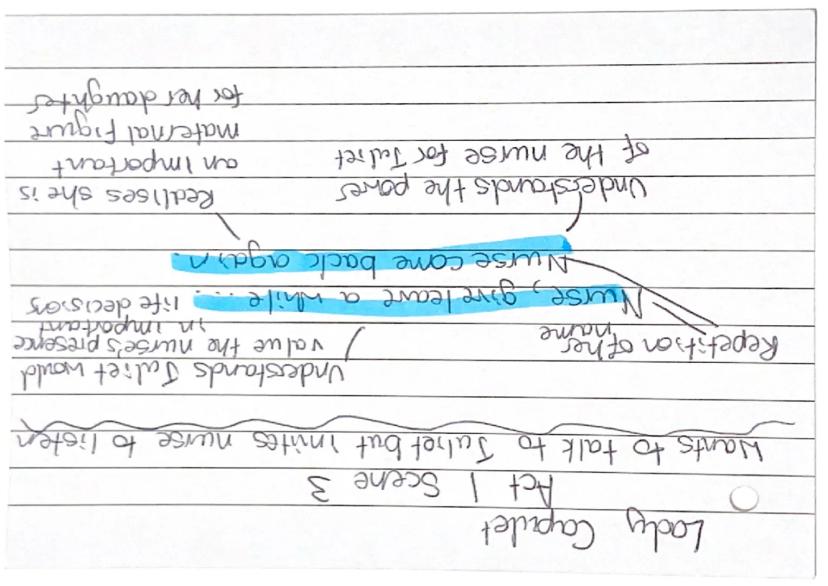 Lady Capulet
Act 1 Scene 3
Wants to talk to Juliet but invites nurse to listen
Understands Juliet would
value the nurse's presence
in important
life decisions
Repetition of her
name
Nurse, give leave a while ....
Nurse come back again.
Understands the power
of the nurse for Juliet
Realises she is
an important
maternal figure
for her daughter